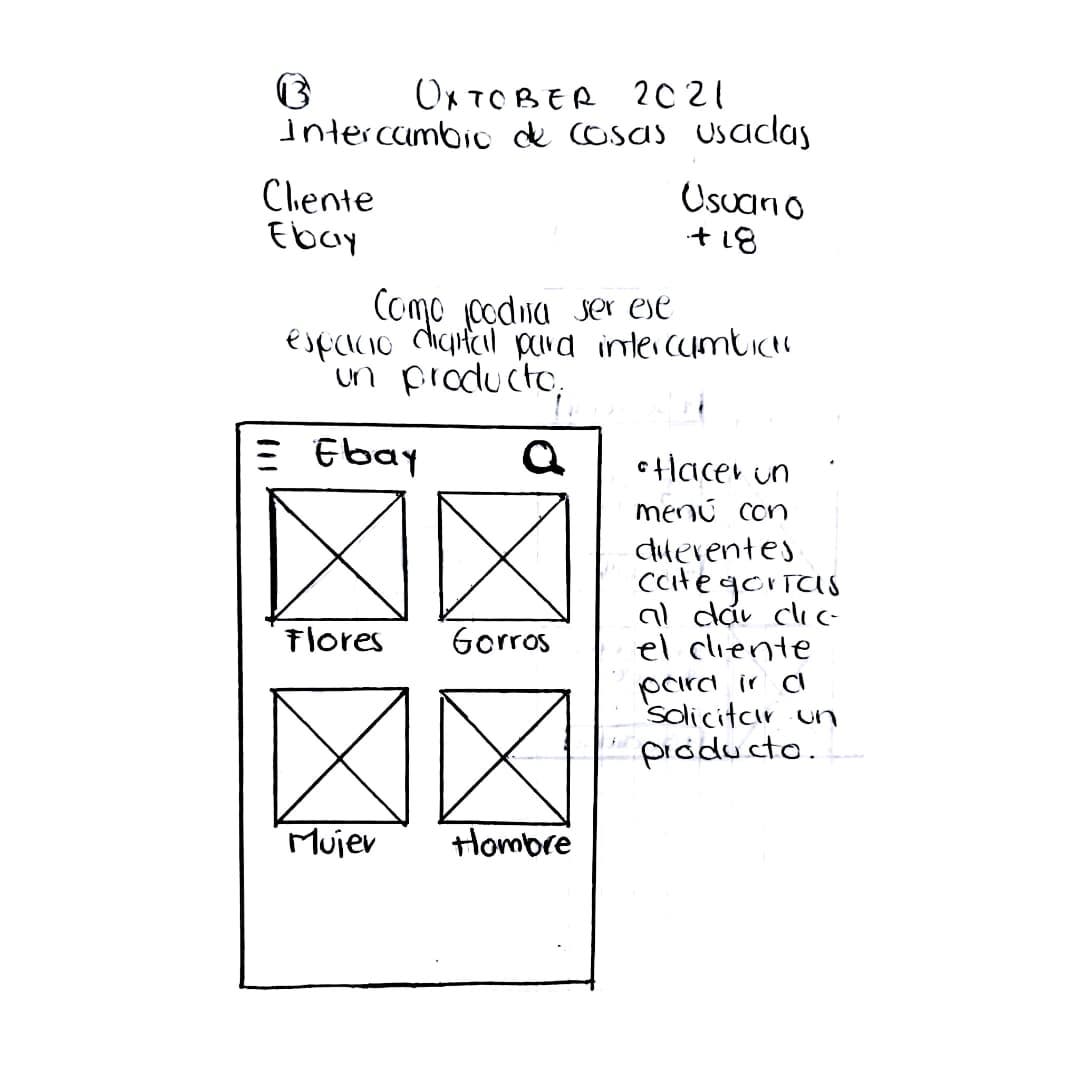 13 UXTOBER 2021
Intercambio de cosas usadas
Cliente Usuario
Ebay +18
Como podria ser ese
espacio digital para intercambiar
un producto.
Ebay
Flores Gorros
Mujer Hombre
Hacer un
menú con
diferentes
categorías
al dar clic
el cliente
para ir a
solicitar un
producto.